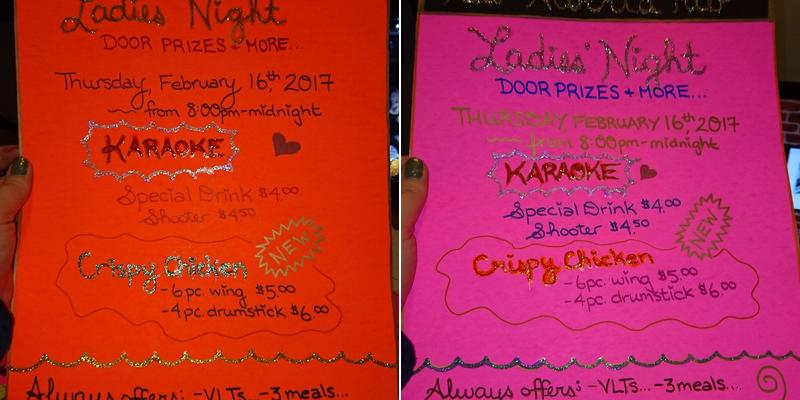 Ladies Night
DOOR PRIZES + MORE...
Thursday, February 16th, 2017
from 8:00pm-midnight
KARAOKE
Special Drink $4.00
Shooter $4.50
NEW
Crispy Chicken
-6pc. wing $5.00
-4pc. drumstick $6.00
Always offers: -VLTs... -3 meals...
Ladies' Night
DOOR PRIZES + MORE...
THURSDAY, FEBRUARY 16th, 2017
from 8:00pm-midnight
KARAOKE
Special Drink $4.00
Shooter $4.50
NEW
Crispy Chicken
-6pc. wing $5.00
-4pc. drumstick $6.00
Always offers: -VLTs... -3 meals...